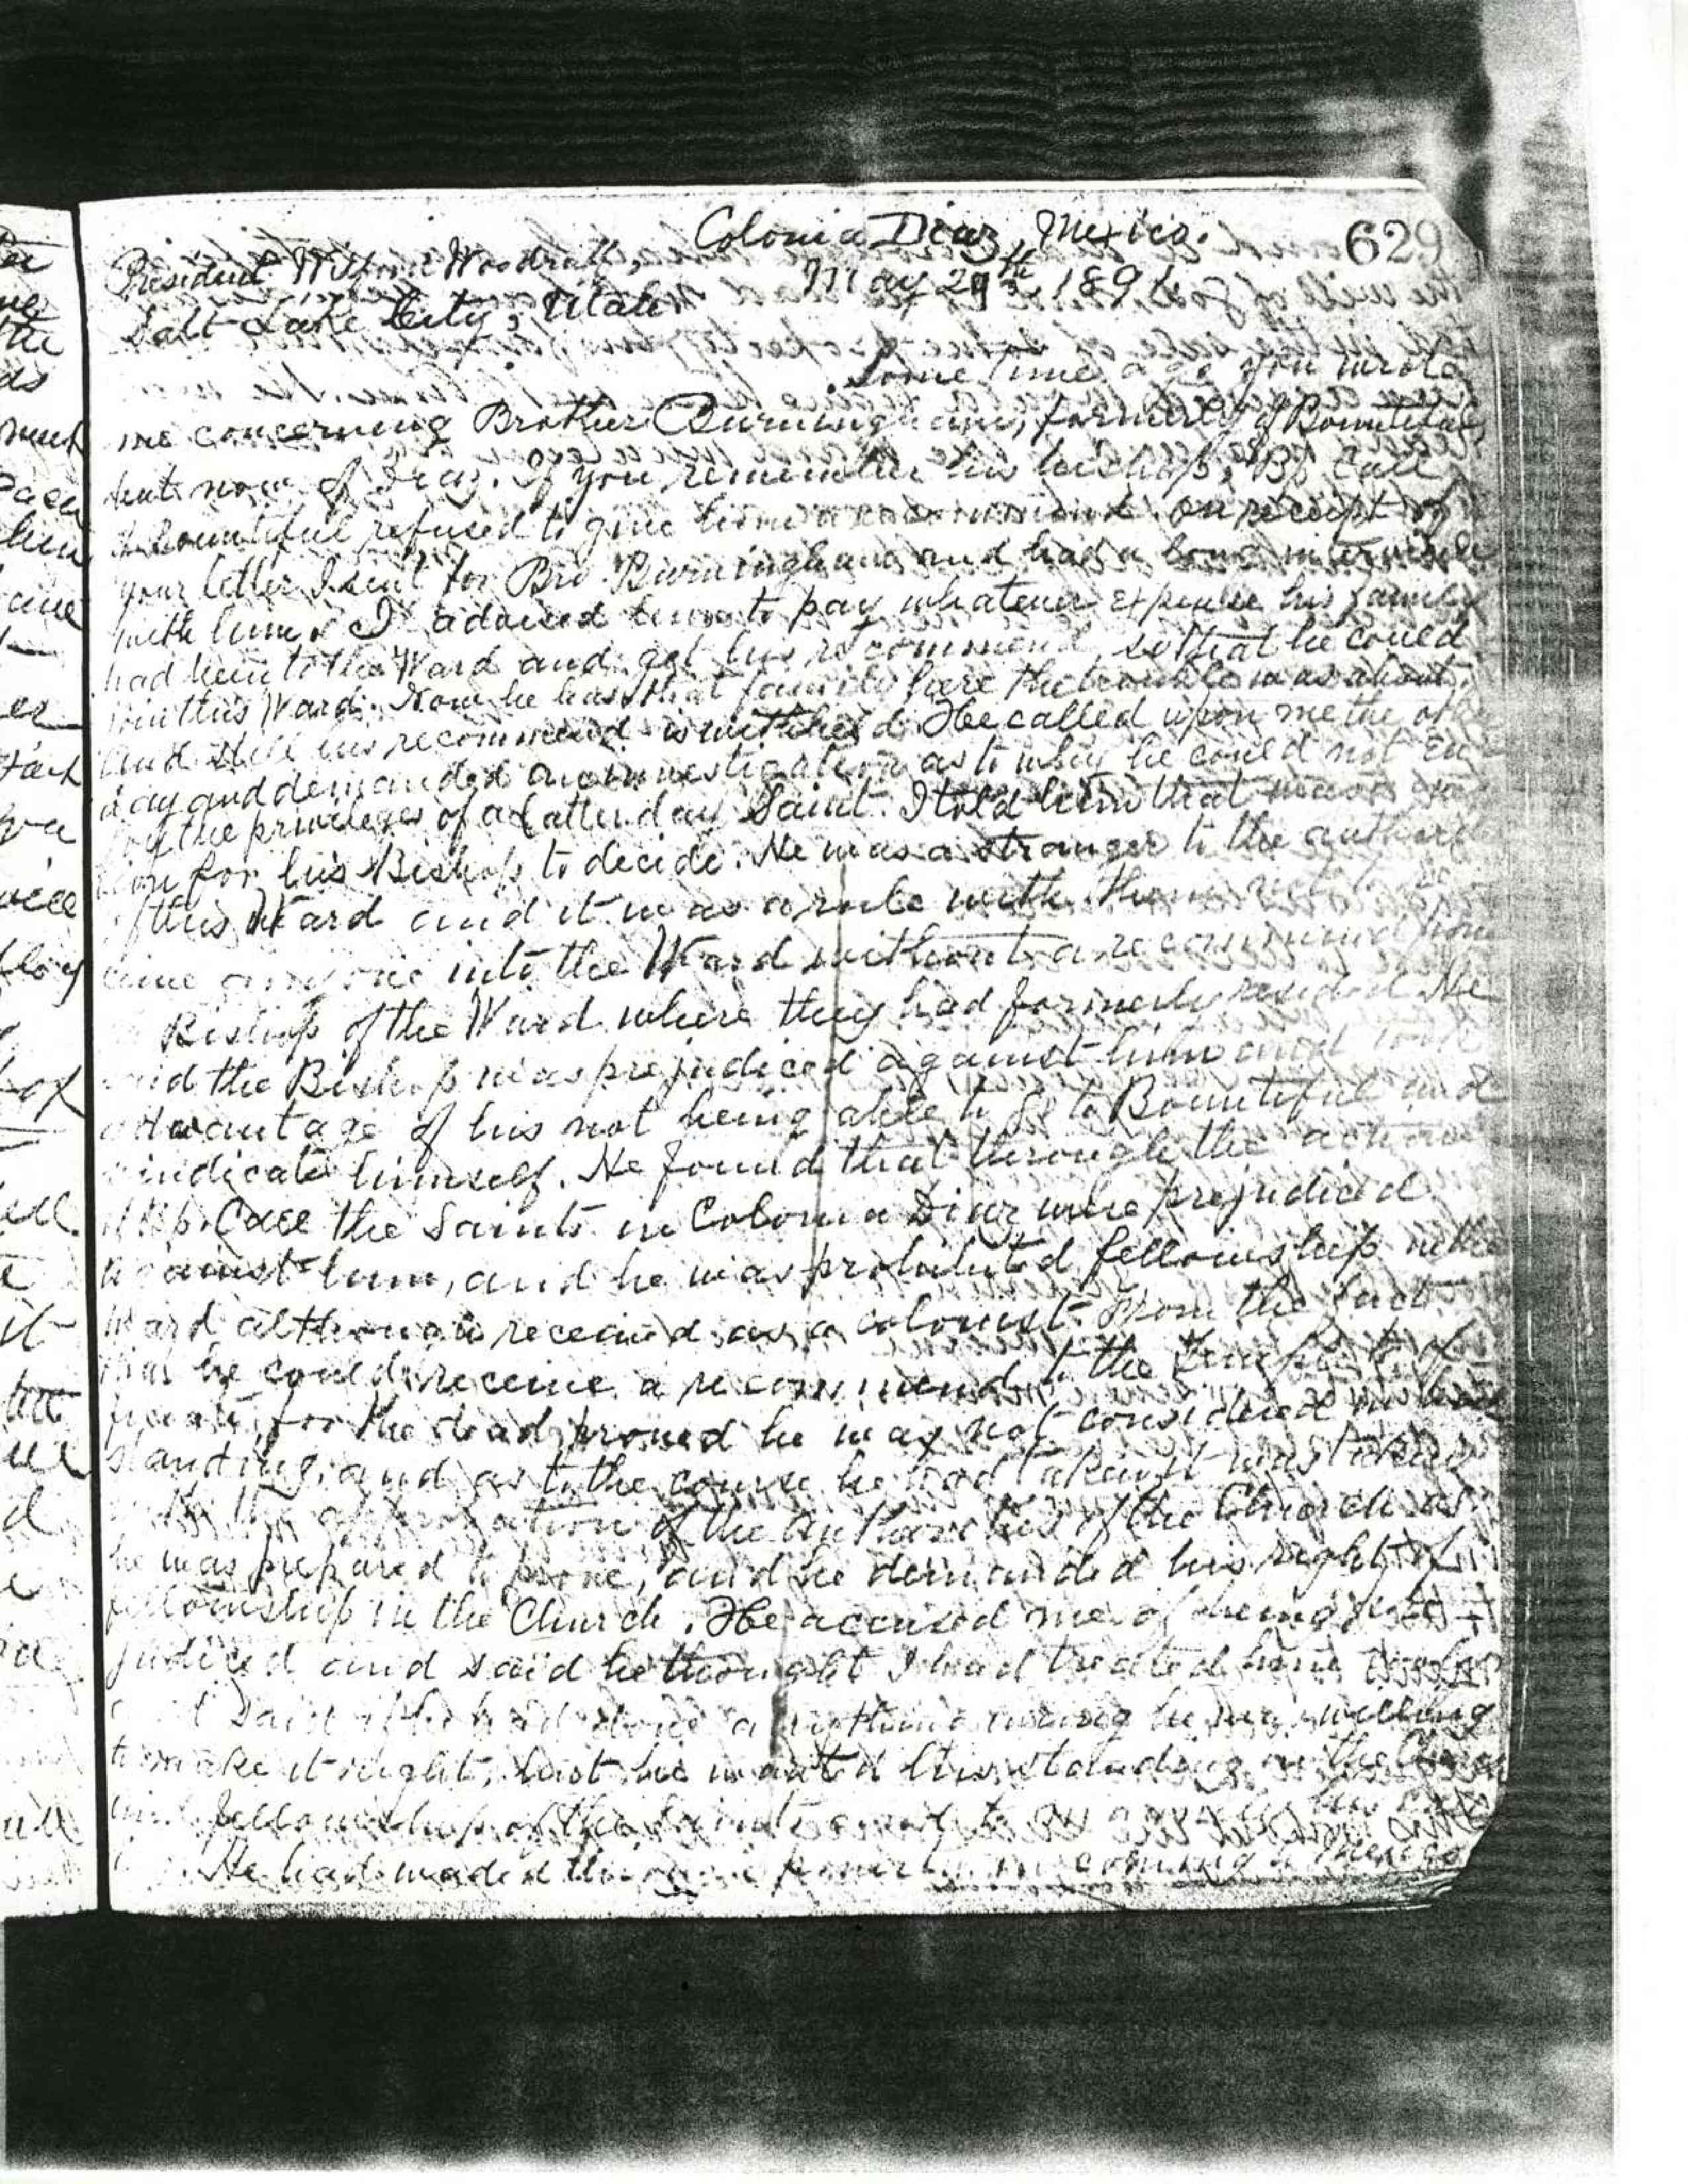 629
Colonia Diaz, Mexico.
May 29th 1891
President Wilford Woodruff,
Salt Lake City, Utah.
Some time ago you wrote
me concerning Brother Burningham, formerly of Bountiful,
but now of Diaz. If you remember his bishop, Bp Call
of Bountiful refused to give him a recommend. on receipt of
your letter I sent for Bro. Burningham and had a long interview
with him. I advised him to pay whatever expense his family
had been to the Ward and get his recommend, so that he could
join this Ward. Now he has that family here the trouble was about
and still his recommend is withheld. He called upon me the other
day and demanded an investigation as to why he could not en
joy the privileges of a Latter day Saint. I told him that was
for his Bishop to decide. He was a stranger to the authori
of this Ward and it was a rule with them not to
anyone into the Ward without a recommend from
Bishop of the Ward where they had formerly resided. He
said the Bishop was prejudiced against him and took
advantage of his not being able to go to Bountiful and
vindicate himself. He found that through the action
of Bp. Call the Saints in Colonia Diaz were prejudiced
against him, and he was prohibited fellowship in the
Ward although received as a colonist. From the fact
that he could receive a recommend to the Temple to
for the dead proved he was not considered in
standing, and as to the course he had taken it was taken
of the authorities of the Church as
he was prepared to prove, and he demanded his right of
fellowship in the Church. He accused me of being pre-
judiced and said he thought I had treated him
said if he had done anything wrong he was willing
to make it right, but he wanted his standing in the Church
and fellowship of the Saints and to
He had waded through poverty in coming to Mexico